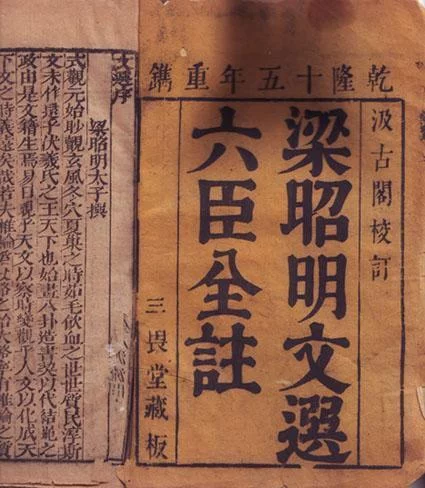 乾隆十五年重鐫
汲古閣校訂
梁昭明文選
六臣全註
三畏堂藏板
文選序
梁昭明太子撰
式觀元始眇觀玄風冬穴夏巢之時茹毛飲血之世世質民淳斯
文未作逮乎伏羲氏之王天下也始畫八卦造書契以代結繩之
政由是文籍生焉易曰觀乎天文以察時變觀乎人文以化成天
下文之時義遠矣哉若夫椎輪為大輅之始大輅寧有椎輪之質